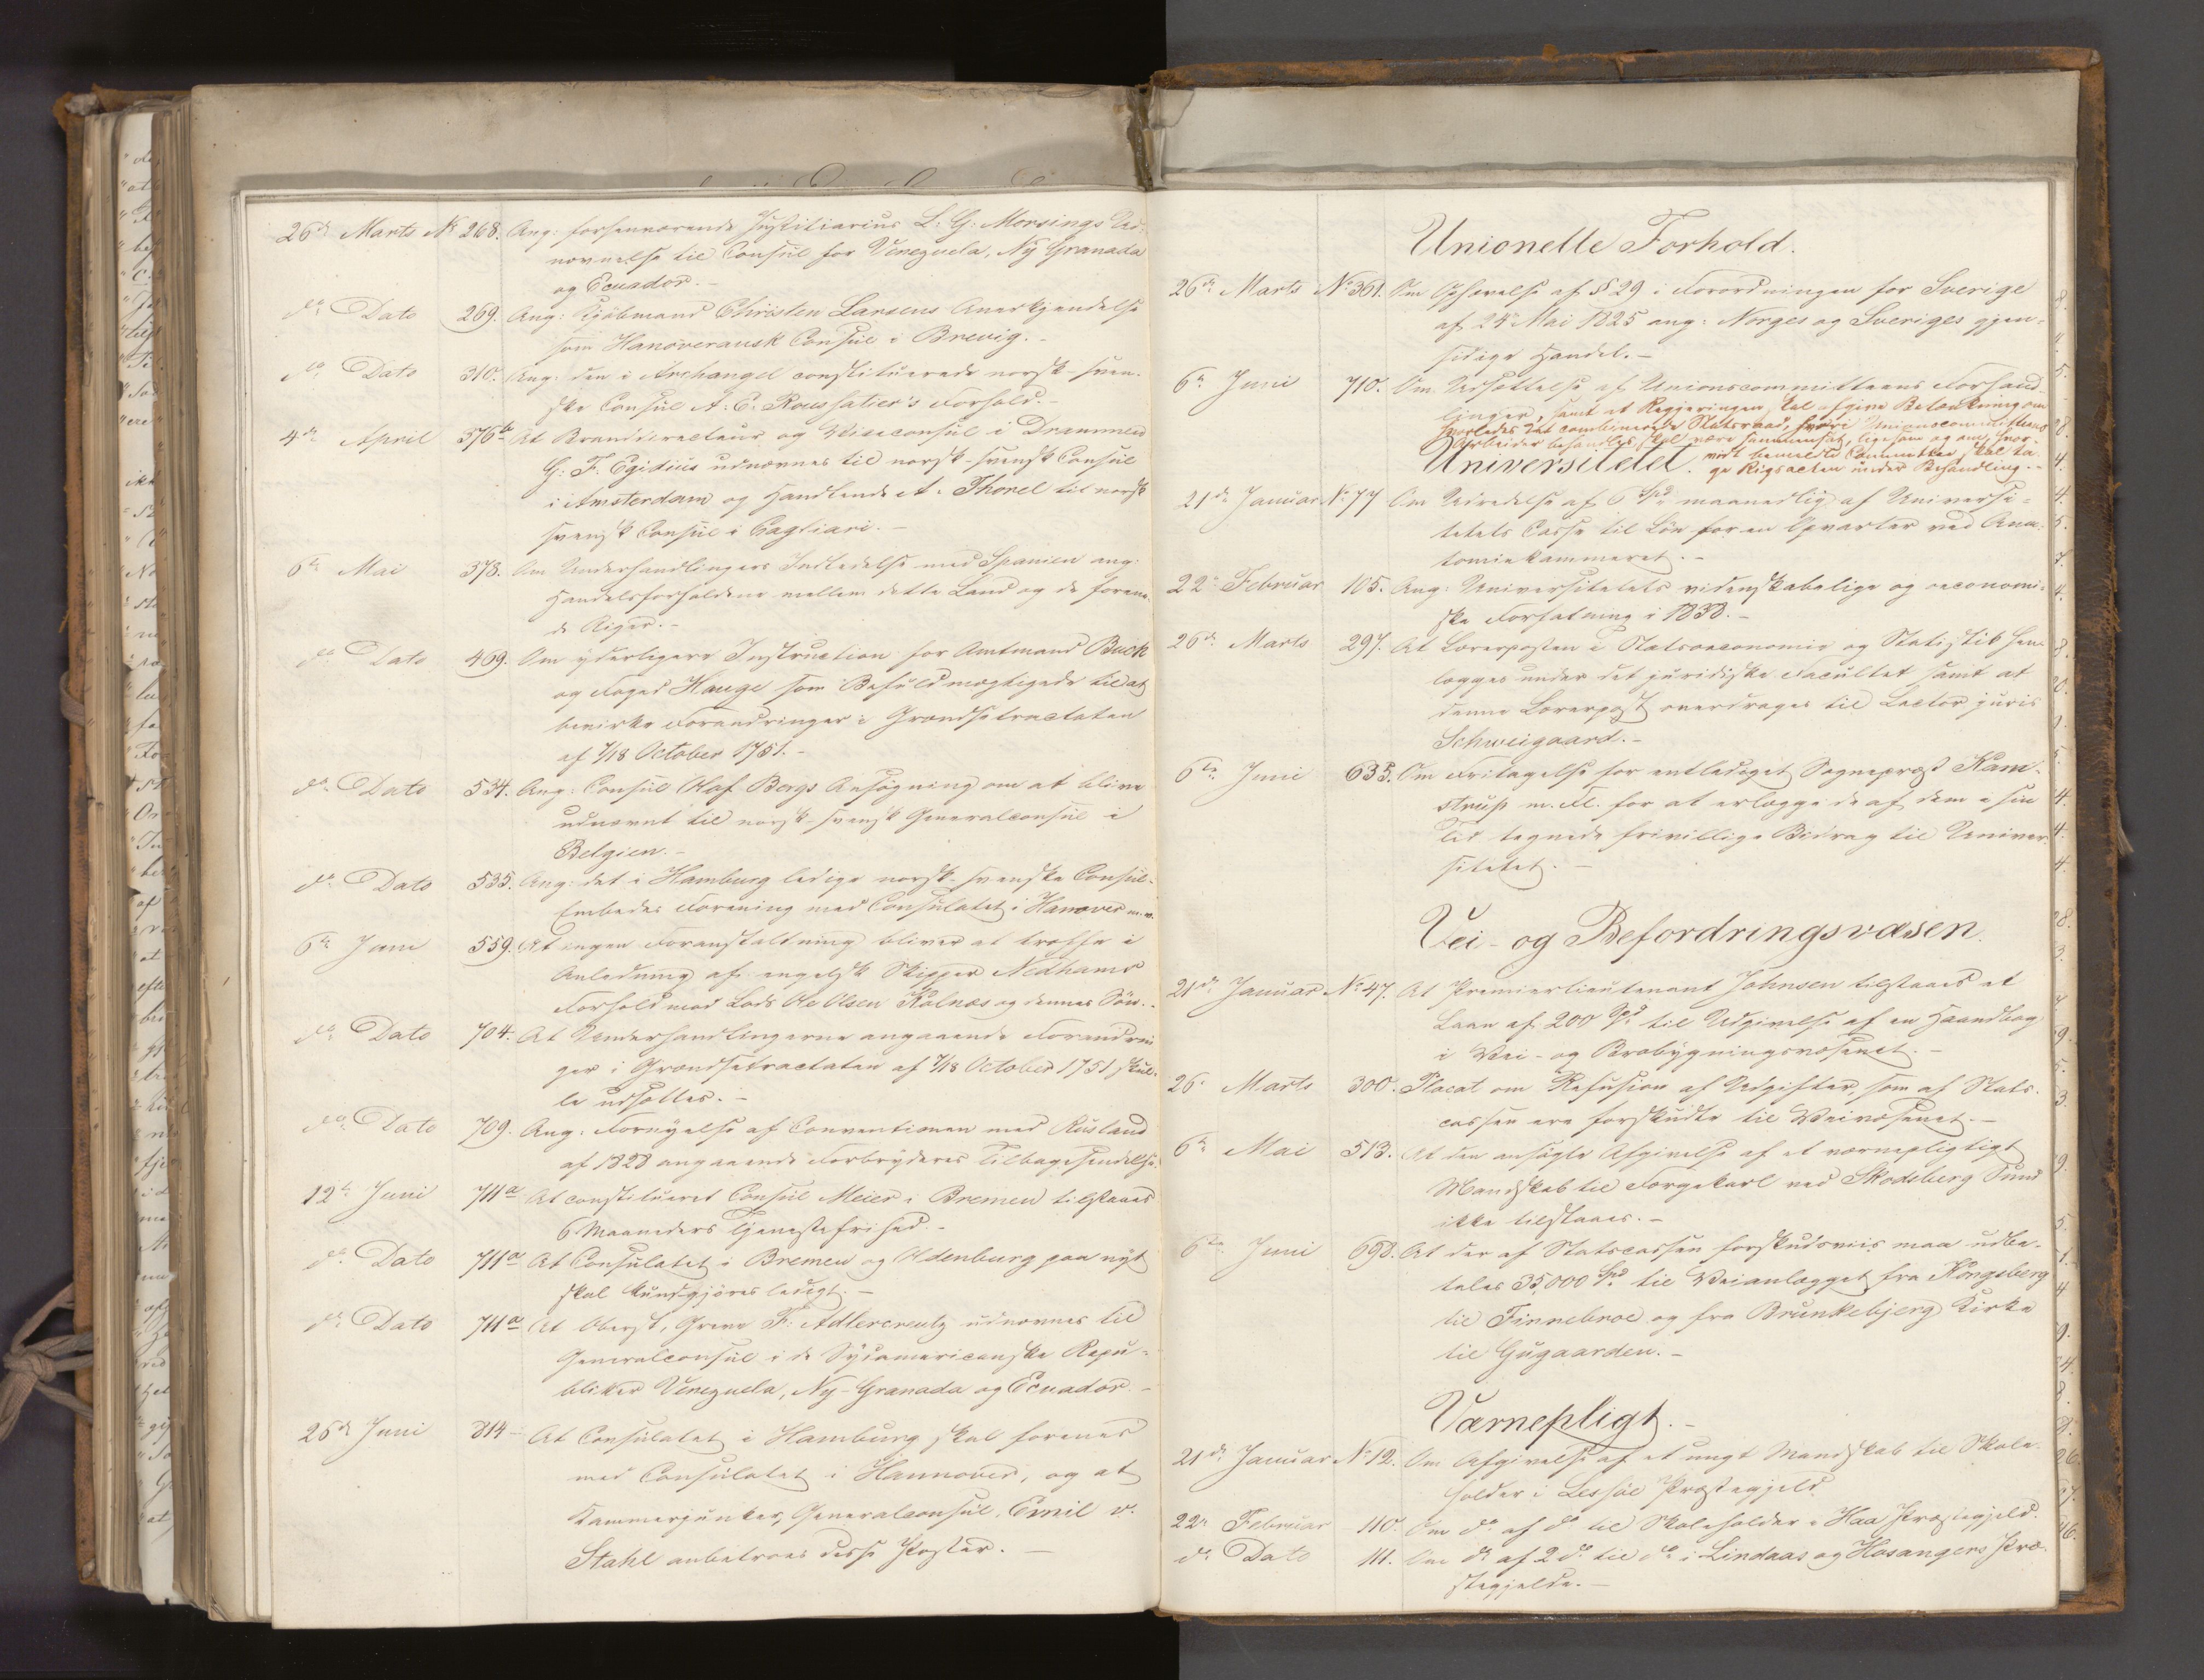 26de Marts No 268. Ang: forhenværende Justitiarius L: G: Morsings Ud-
nævnelse til Consul for Venezuela, Ny Granada
og Ecuador.-
do Dato 269. Ang: Kjøbmand Christen Larsens Anerkjendelse
som Hanoveransk Consul i Brevig.-
do Dato 310. Ang: den i Archangel constituerede norsk-sven-
ske Consul A: C: Forhold.-
4de April 376 At Branddirecteur og Viceconsul i Drammen
G: F: Egidius udnævnes til norsk-svensk Consul
i Amsterdam og Handlende A. Thorel til norsk
svensk Consul i Cagliari.-
6te Mai 378. Om Underhandlingers Indledelse med Spanien ang:
Handelsforholdene mellem dette Land og de forene-
de Riger.-
do Dato 469. Om yderligere Instruction for Amtmand Buch
og Foged Hauge som Befuldmægtigede til at
bevirke Forandringer i Grændsetractaten
af 7/18 October 1751.-
do Dato 534. Ang: Consul Olaf Bergs Ansøgning om at blive
udnævnt til norsk-svensk Generalconsul i
Belgien.-
do Dato 535. Ang: det i Hamburg ledige norsk-svenske Consul-
Embedes Forening med Consulatet i Hanover m.v.
6te Juni 559. At ingen Foranstaltning bliver at træffe i
Anledning af engelsk Skipper Nedhams
Forhold mod Lods Ole Olsen Kalnæs og dennes Søn.-
do Dato 704. At Underhandlingerne angaaende Forandrin-
ger i Grændsetractaten af 7/18 October 1751 skul-
le udsættes.-
do Dato 709. Ang: Fornyelse af Conventionen med Rusland
af 1828 angaaende Forbryderes Tilbagesendelse.
12te Juni 711a At constitueret Consul Meier i Bremen tilstaaes
6 Maaneders Tjenestefrihed.-
do Dato 711a At Consulatet i Bremen og Oldenburg paa nyt
skal kundgjøres ledigt.-
do Dato 711a At Oberst, Greve F: Adlercreutz udnævnes til
Generalconsul i de Sydamericanske Repu-
bliker Venezuela, Ny-Granada og Ecuador.-
26de Juni 814 At Consulatet i Hamburg skal forenes
med Consulatet i Hannover, og at
Kammerjunker, Generalconsul, Emil v.
Stahl anbetroes disse Poster.-
Unionelle Forhold.
26de Marts No 361. Om Ophævelse af § 29 i Forordningen for Sverige
af 24de Mai 1825 ang: Norges og Sveriges gjen-
sidige Handel.-
6te Juni 710. Om Udsættelse af Unionscommitteens Forhand-
linger, samt at Regjeringen skal afgive Betænkning om
hvorledes det combinerede Statsraad, hvori Unionscommitteens
Arbeider behandles, skal være sammensat, ligesom og om, hvor-
vidt bemeldte Committee skal ta-
ge Rigsacten under Behandling.-
Universitetet.
21de Januar No 77 Om Udredelse af 6 Spd maanedlig af Universi-
tetets Casse til Løn for en Opvarter ved Ana-
tomiekammeret.-
22de Februar 105. Ang: Universitetets videnskabelige og oeconomi-
ske Forfatning i 1838.-
26de Marts 297. At Lærerposten i Statsoeconomie og Statistik hen-
lægges under det juridiske Facultet samt at
denne Lærerpost overdrages til Lector juris
Schweigaard.-
6te Juni 635. Om Fritagelse for entlediget Sogneprest Kam-
strup m. Fl. for at erlægge de af dem i sin
Tid tegnede frivillige Bidrag til Univer-
sitetet.-
Vei- og Befordringsvæsen.
21de Januar No 47. At Premierlieutenant Johnsen tilstaaes et
Laan af 200 Spd til Udgivelse af en Haandbog
i Vei- og Brobygningsvæsenet.-
26. Marts 300. Placat om Refusion af Udgifter, som af Stats-
cassen ere forskudte til Veivæsenet.-
6te Mai 513. At den ansøgte Afgivelse af et værnepligtigt
Mandskab til Færgekarl ved Skodsberg Sund
ikke tilstaaes.-
6te Juni 698. At der af Statscassen forskudsviis maa udbe-
tales 35,000 Spd til Veianlægget fra Kongsberg
til Tinnebroe og fra Brunkebjerg Kirke
til Gugaarden.-
Værnepligt.-
21de Januar No 12. Om Afgivelse af et ungt Mandskab til Skole-
holder i Lessøe Præstegjeld
22de Februar 110. Om do af do til Skoleholder i Haa Præstegjeld.
do Dato 111. Om do af 2 do til do i Lindaas og Hosangers Præ-
stegjelde.-